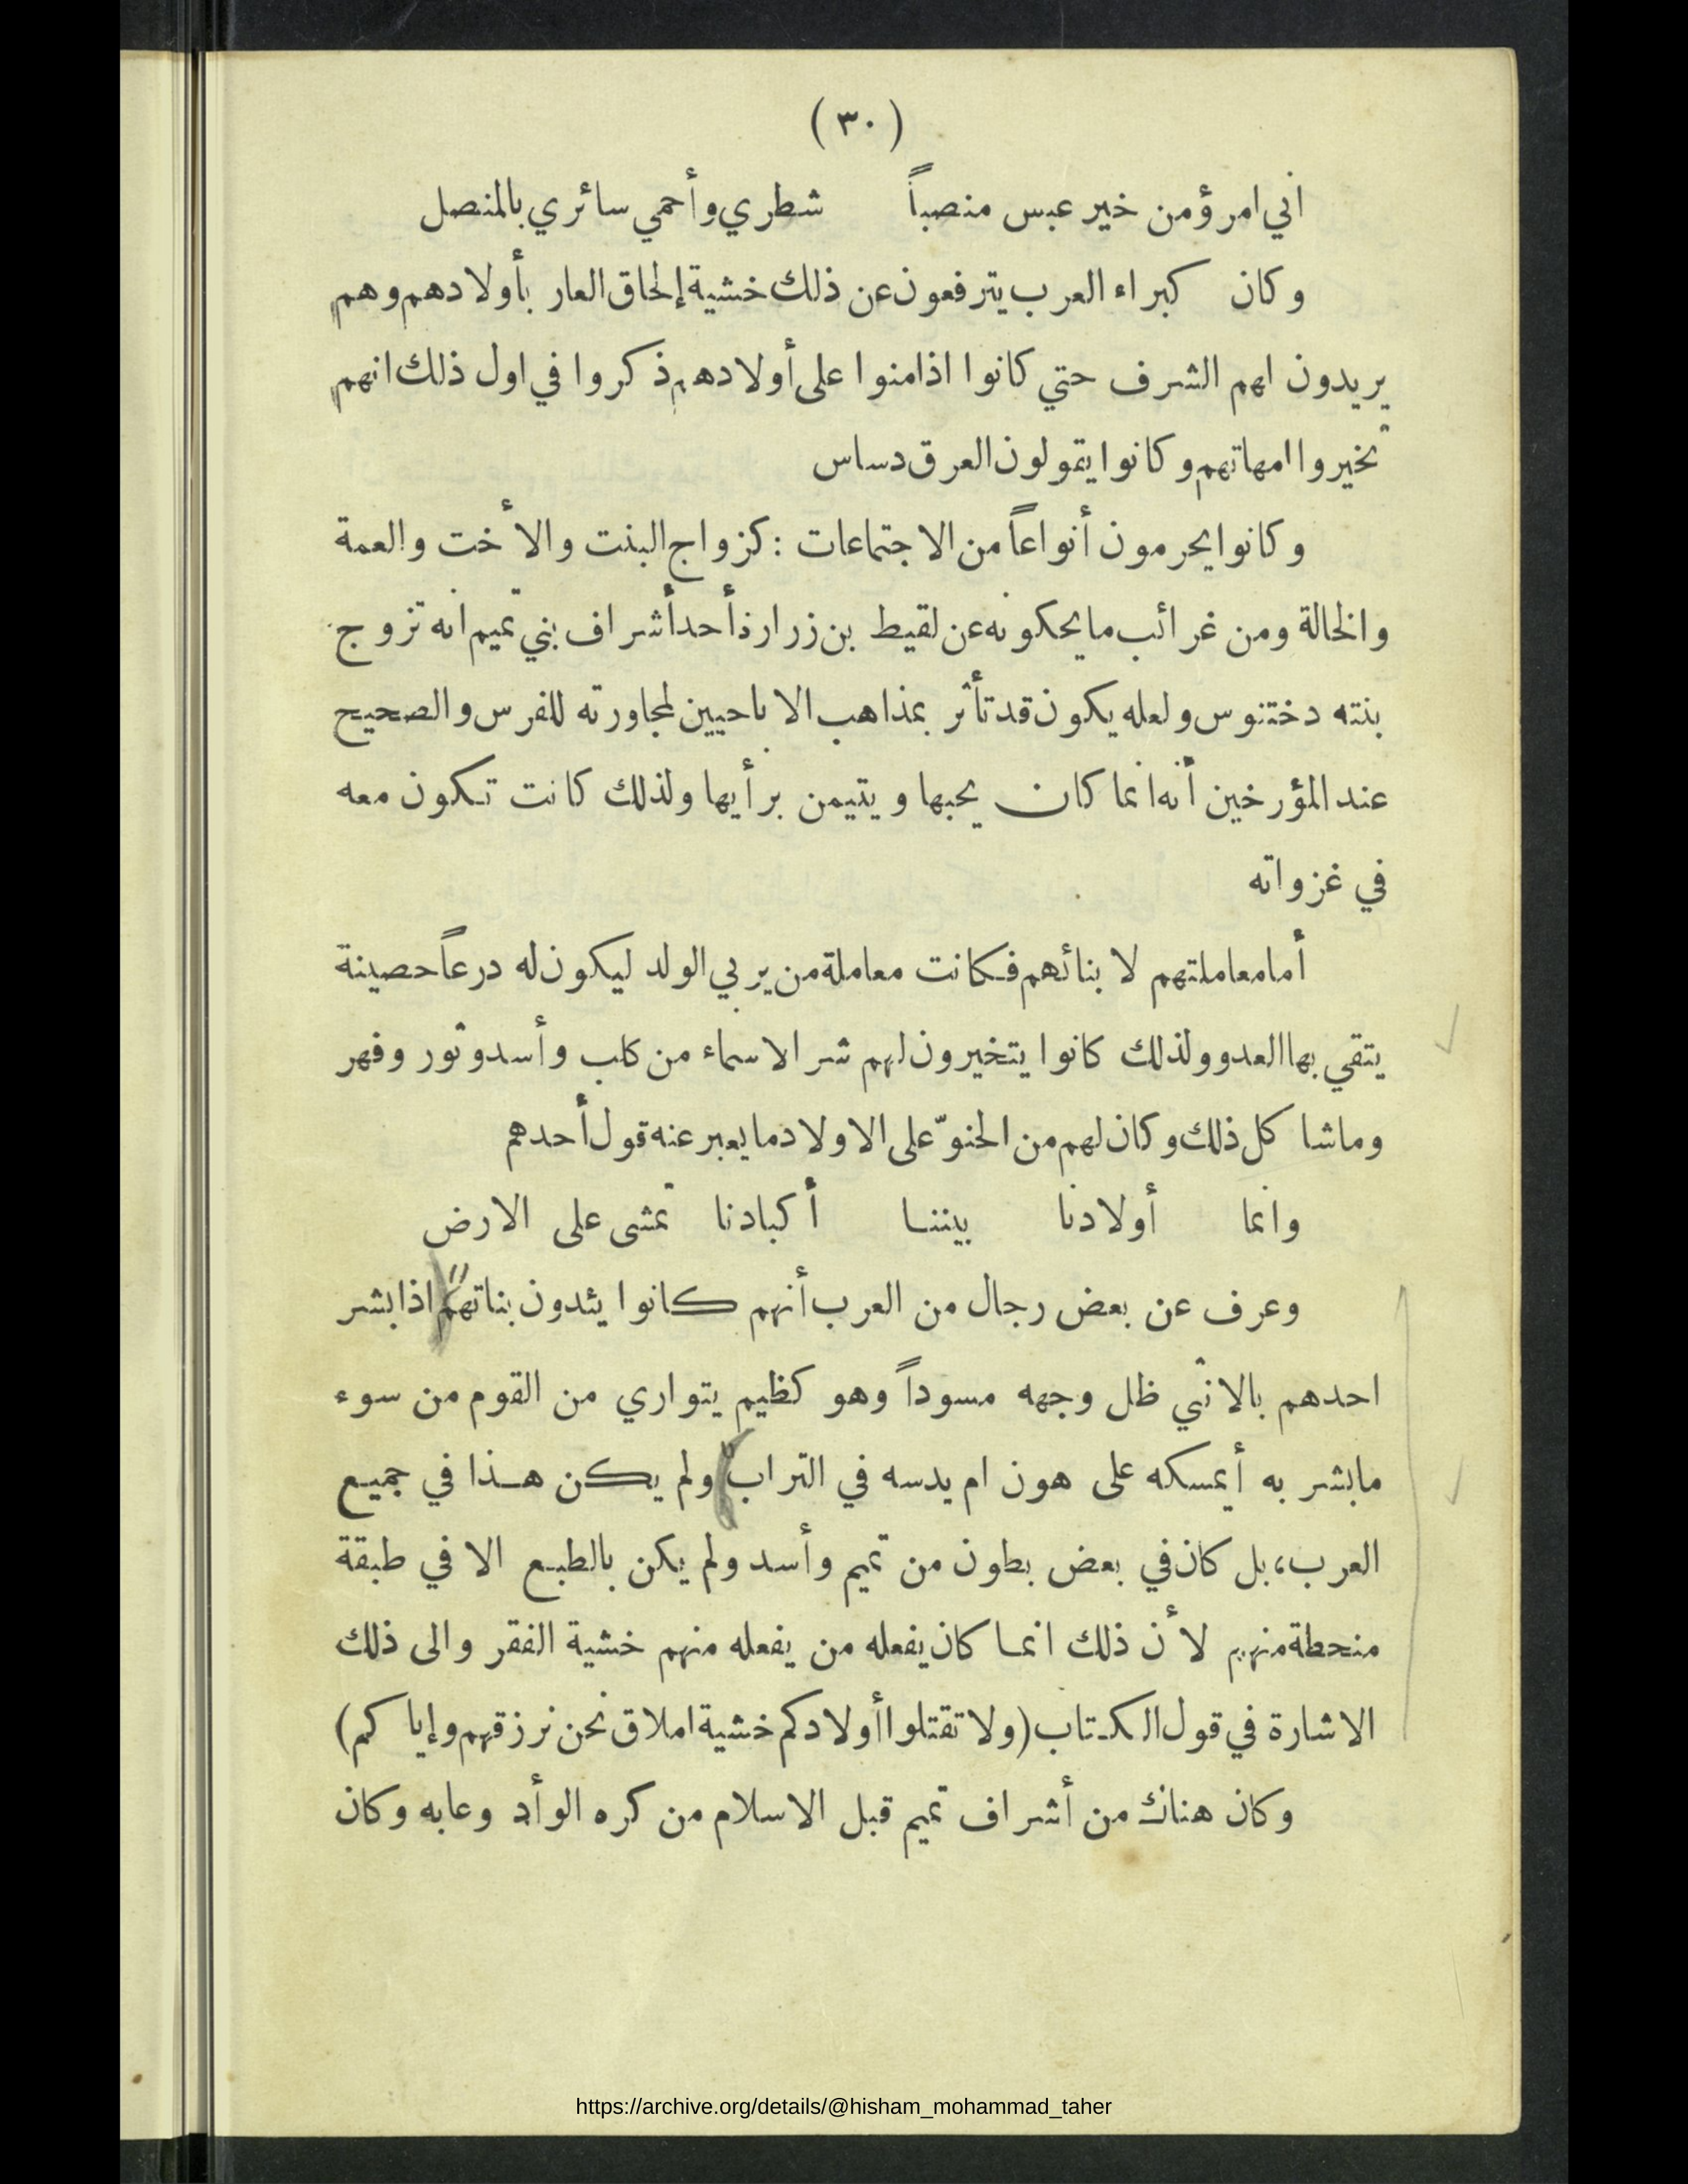 (٣٠)
اني امرؤ من خير عبس منصباً شطري وأحمي سائري بالمنصل
وكان كبراء العرب يترفعون عن ذلك خشية إلحاق العار بأولادهم وهم
يريدون لهم الشرف حتي كانوا اذا منوا على أولادهم ذكروا في اول ذلك انهم
تخيروا امهاتهم وكانوا يقولون العرق دساس
وكانوا يحرمون أنواعاً من الاجتماعات : كزواج البنت والأخت والعمة
والخالة ومن غرائب ما يحكونه عن لقيط بن زرارة أحد أشراف بني تميم انه تزوج
بنته دختنوس ولعله يكون قد تأثر بمذاهب الاباحيين لمجاورته للفرس والصحيح
عند المؤرخين أنه انما كان يحبها ويتيمن برأيها ولذلك كانت تكون معه
في غزواته
أما معاملتهم لابنائهم فكانت معاملة من يربي الولد ليكون له درعاً حصينة
يتقي بها العدو ولذلك كانوا يتخيرون لهم شر الاسماء من كلب وأسد وثور وفهر
وماشا كل ذلك وكان لهم من الحنوّ على الاولاد ما يعبر عنه قول أحدهم
وانما أولادنا بيننا أكبادنا تمشى على الارض
وعرف عن بعض رجال من العرب أنهم كانوا يئدون بناتهم اذا بشر
احدهم بالانثي ظل وجهه مسوداً وهو كظيم يتواري من القوم من سوء
مابشر به أيمسكه على هون ام يدسه في التراب ولم يكن هذا في جميع
العرب، بل كان في بعض بطون من تميم وأسد ولم يكن بالطبع الا في طبقة
منحطة منهم لأن ذلك انما كان يفعله من يفعله منهم خشية الفقر والى ذلك
الاشارة في قول الكتاب (ولا تقتلوا أولادكم خشية املاق نحن نرزقهم وإياكم)
وكان هناك من أشراف تميم قبل الاسلام من كره الوأد وعابه وكان
https://archive.org/details/@hisham_mohammad_taher